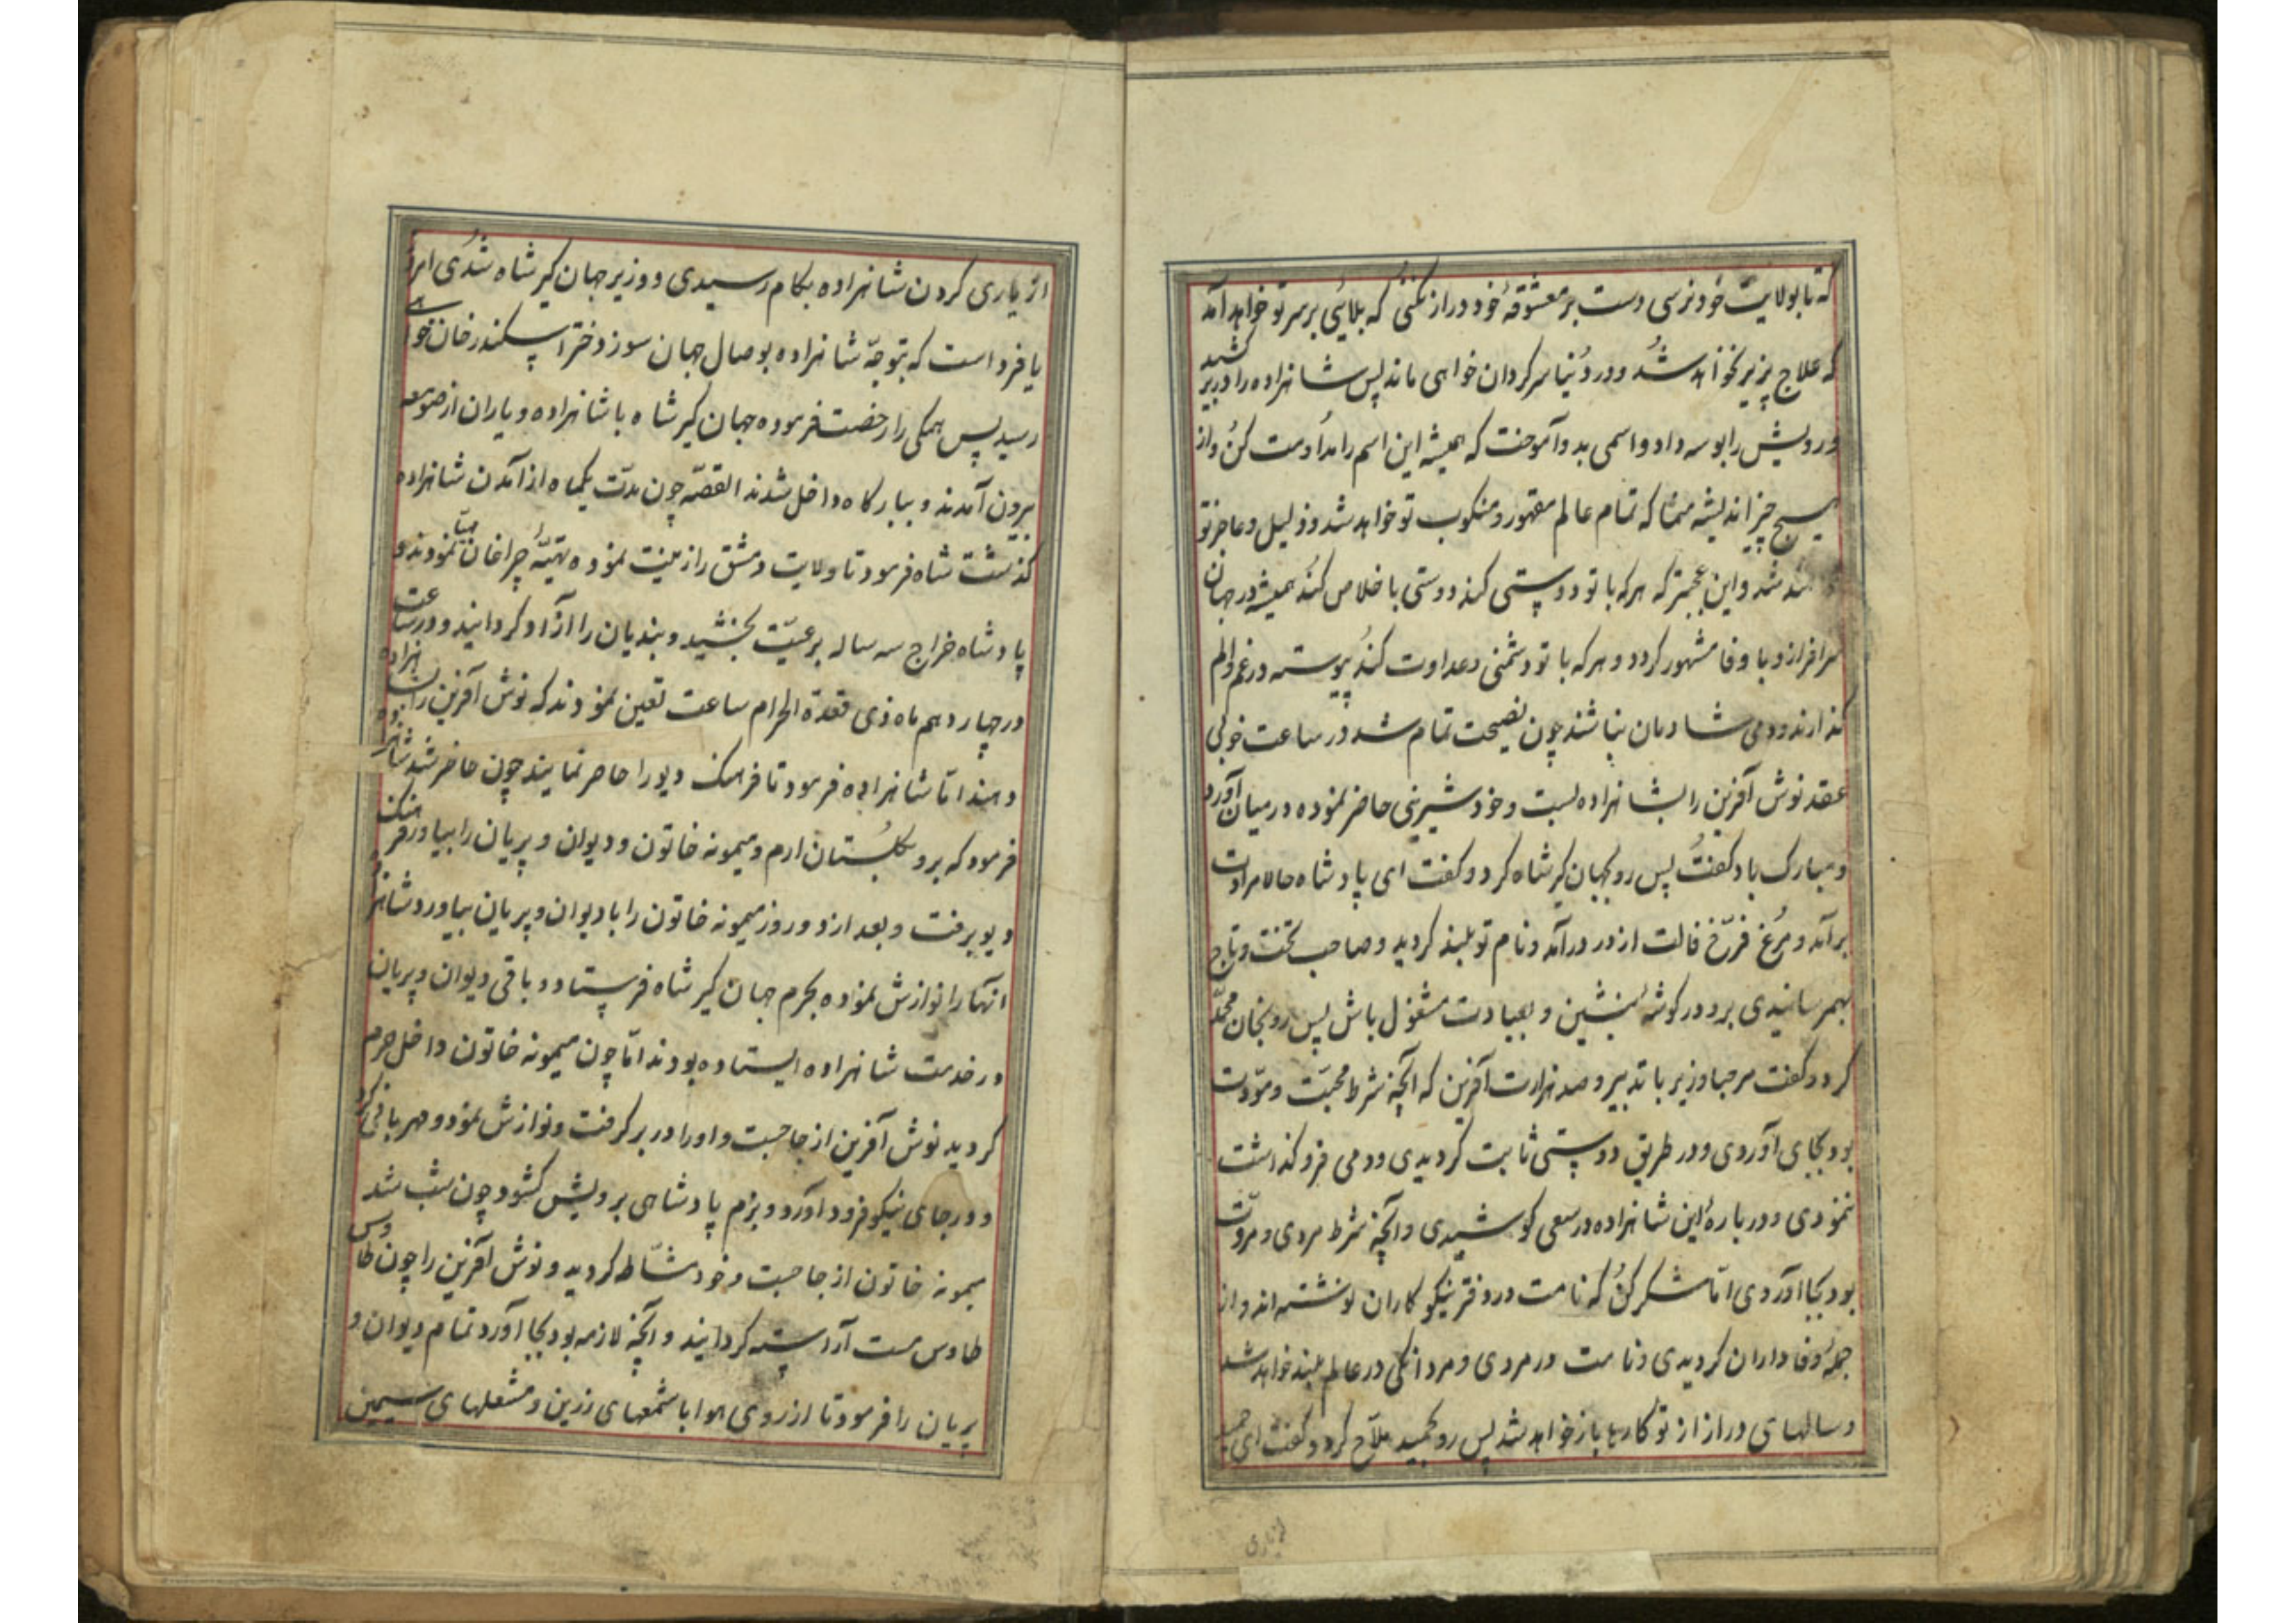 که تا بولایت خود نرسی دست بر معشوقهٔ خود دراز نکنی که بلائی بر سر تو خواهد آمد
که علاج پزیر نخواهد شد و در دنیا سرکردان خواهی ماند پس شاهزاده را در بر کشید
درویش را بوسه داد و اسمی بدو آموخت که همیشه این اسم را مداومت کن و از
هیچ چیز اندیشه منما که تمام عالم مقهور و منکوب تو خواهد شد و ذلیل و عاجز تو
شد و این عجبتر که هر که با تو دوستی کند دوستی با خلاص کند همیشه در جهان
سرافراز و با وفا مشهور کردد و هر که با تو دشمنی و عداوت کند پیوسته در غم و الم
کذارند و دمی شادمان نباشند چون نصیحت تمام شد در ساعت خوبی
عقد نوش آفرین را بشاهزاده بست و خود شیرینی حاضر نموده در میان آورد
و مبارک باد کفت پس رو بجهان کیر شاه کرد و کفت ای پادشاه حالا مرادت
بر آمد و مرغ فرخ فالت از در درآمد و نام تو بلند کردید و صاحب تخت و تاج
بهمرسانیدی برو در کوشه بنشین و بعبادت مشغول باش پس رو بخان محمد
کرد و کفت مرحبا وزیر با تدبیر و صد هزارت آفرین که آنچه شرط محبت و مودت
بود بجای آوردی و در طریق دوستی ثابت کردیدی و دمی فرو کذاشت
ننمودی و در بارهٔ این شاهزاده در سعی کوشیدی و آنچه شرط مردی و مروت
بود بجا آوردی اما شکر کن که نامت در دفتر نیکو کاران نوشته اند و از
جملهٔ وفاداران کردیدی و نامت در مردی و مردانکی در عالم بلند خواهد شد
و سالهای دراز از تو کارها باز خواهد شد پس رو بحمید ملاح کرد و کفت ای حمید
از یاری
از یاری کردن شاهزاده بکام رسیدی و وزیر جهان کیر شاه شدی امروز
یا فردا است که بتوجه شاهزاده بوصال جهان سوز دختر اسکندر خان خواهی
رسید پس همکی را رخصت فرموده جهان کیر شاه با شاهزاده و یاران از صومعه
بیرون آمدند و ببارکاه داخل شدند القصه چون مدت یکماه از آمدن شاهزاده
کذشت شاه فرمود تا ولایت دمشق را زینت نموده تهیهٔ چراغان مهیا نمودند و
پادشاه خراج سه ساله برعیت بخشید و بندیان را آزاد کردانید و در ساعت
در چهاردهم ماه ذی قعدة الحرام ساعت تعین نمودند که نوش آفرین را بشاهزاده
دهند اما شاهزاده فرمود تا فرهنک دیو را حاضر نمایند چون حاضر شد شاهزاده
فرمود که برو کلستان ارم و میمونه خاتون و دیوان و پریان را بیاور فرهنک
دیو برفت و بعد از دو روز میمونه خاتون را با دیوان و پریان بیاورد شاهزاده
آنها را نوازش نموده بحرم جهان کیر شاه فرستاد و باقی دیوان و پریان
در خدمت شاهزاده ایستاده بودند اما چون میمونه خاتون داخل حرم
کردید نوش آفرین از جا جست و او را در بر کرفت و نوازش نمود و مهربانی کرد
و در جای نیکو فرود آورد و بزم پادشاهی بر ویش کشود چون شب شد
میمونه خاتون از جا جست و خود مشاطه کردید و نوش آفرین را چون طاوس
طاوس مست آراسته کردانید و آنچه لازمه بود بجا آورد تمام دیوان و
پریان را فرمود تا از روی هوا با شمعهای زرین و مشعلهای سیمین